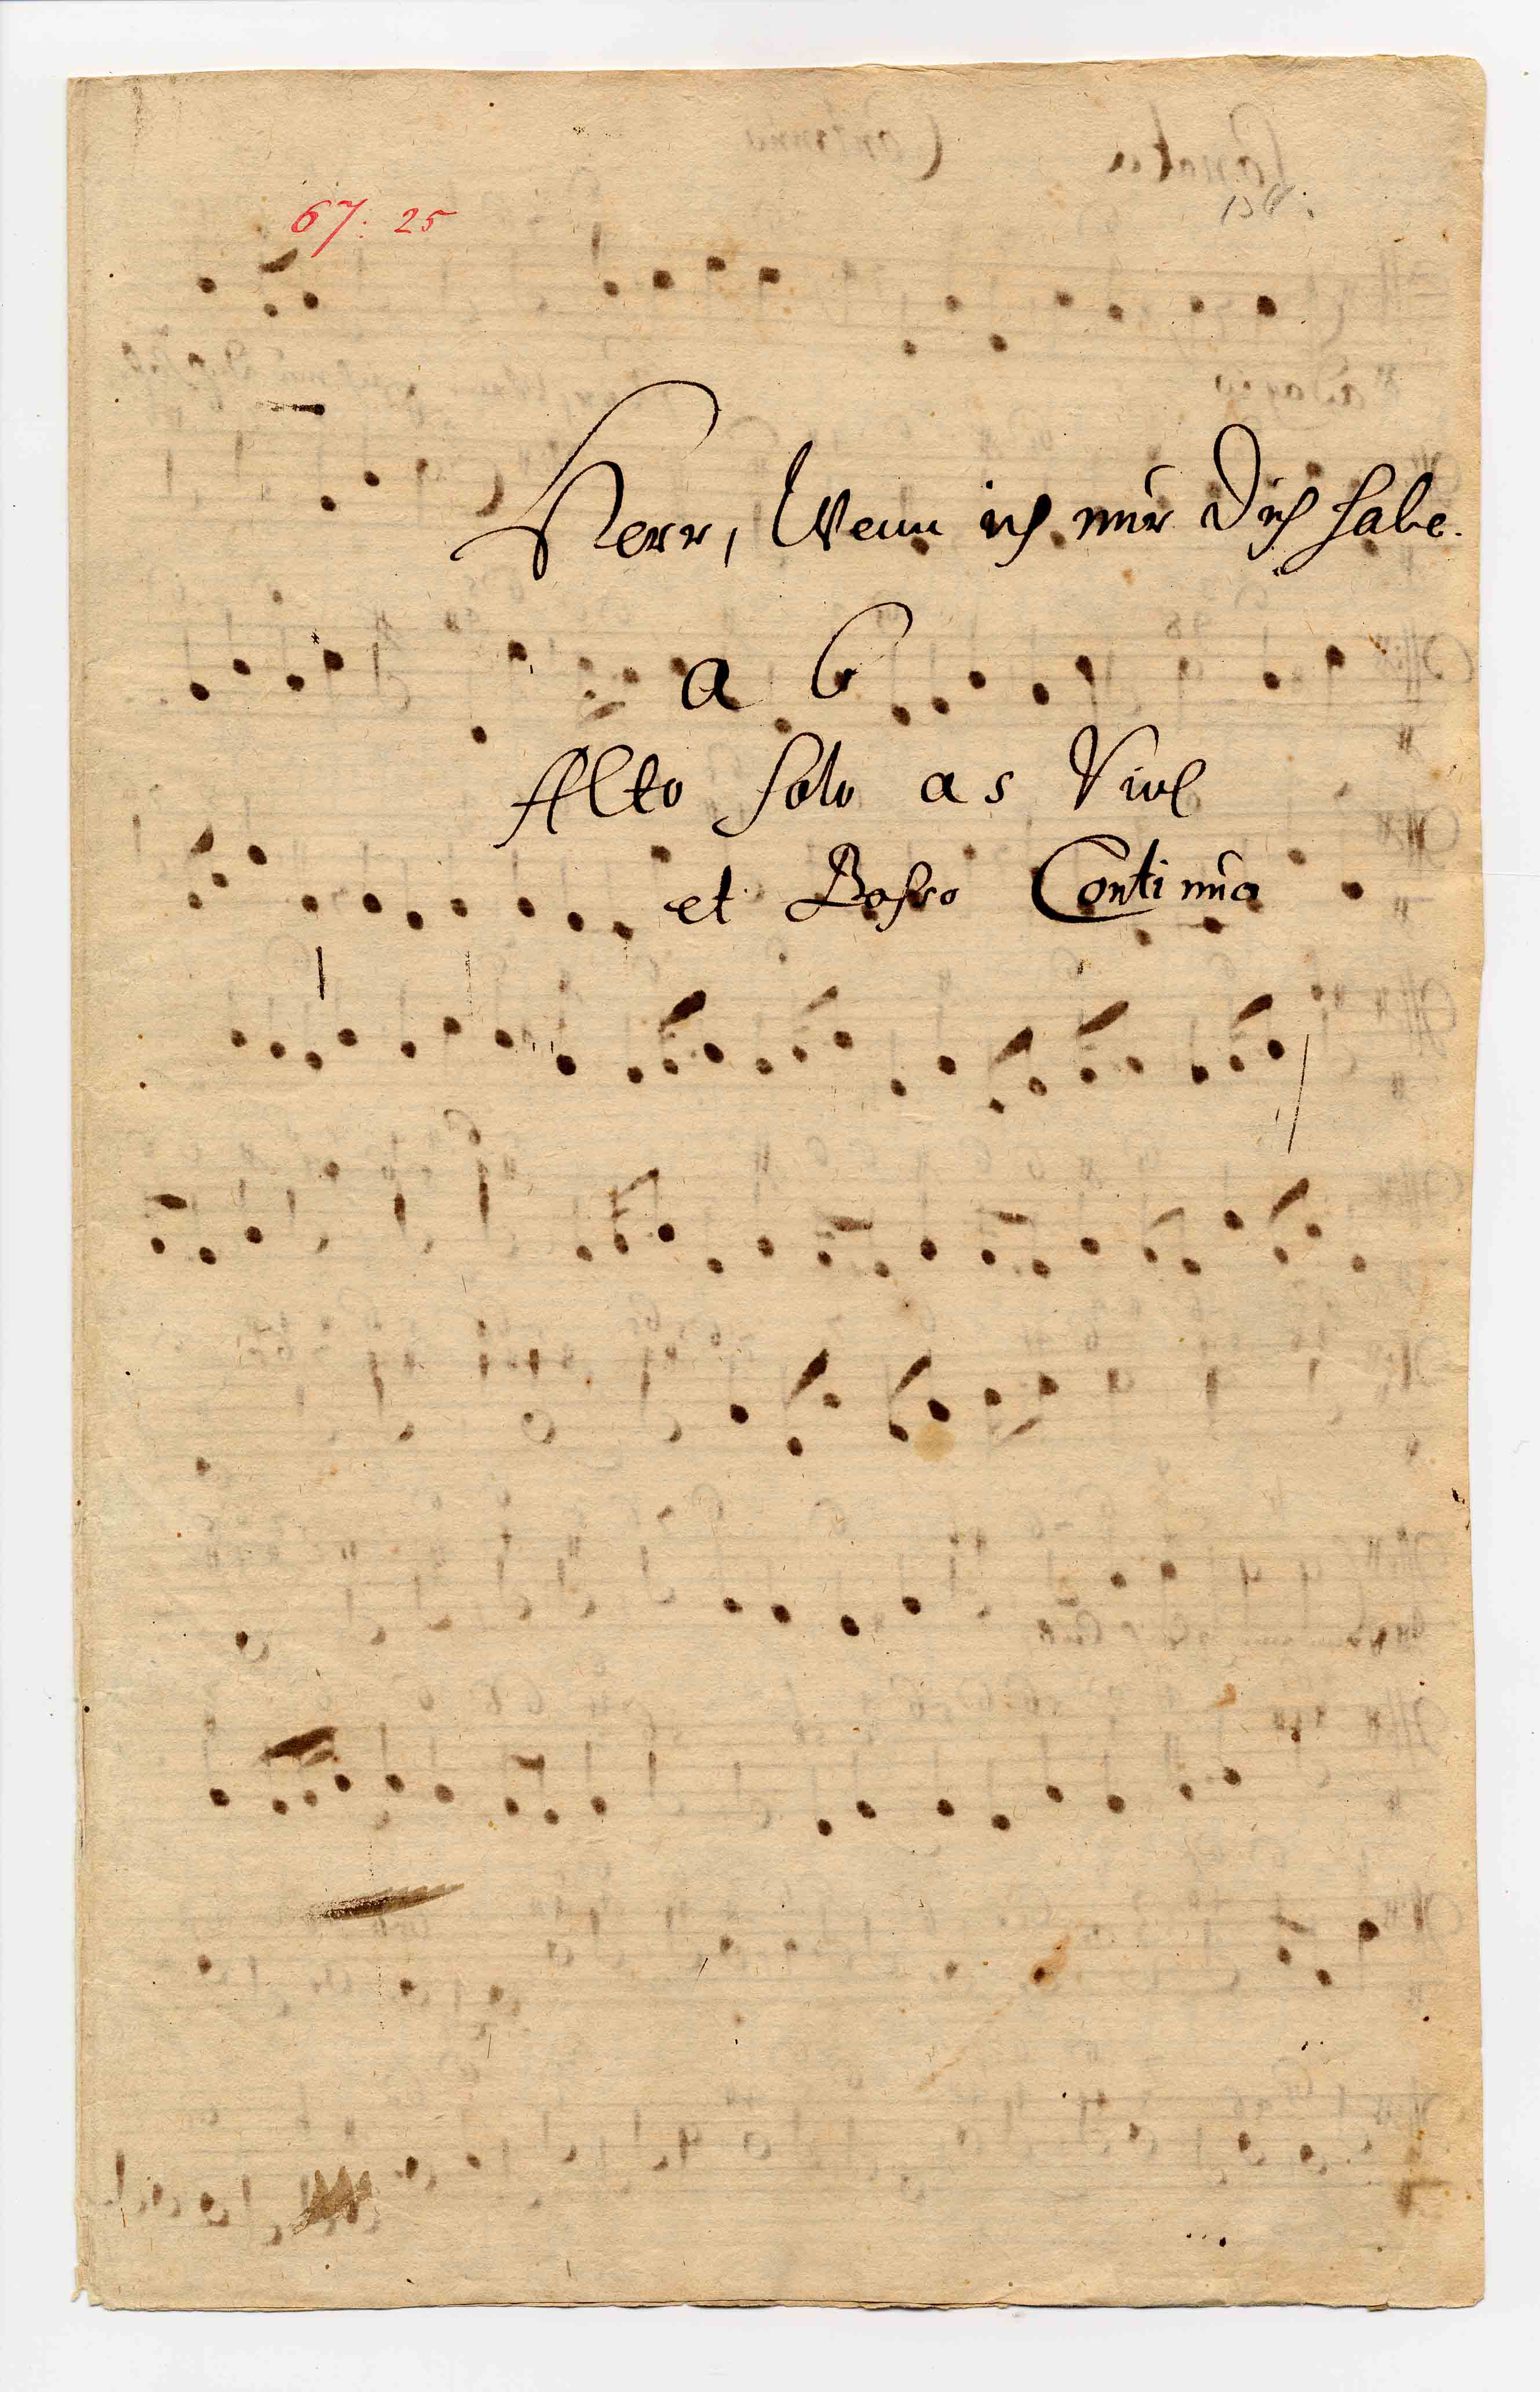 67: 25
Herr, Wenn ich nur Dich habe.
a 6
Alto solo a 5 Viol
et Basso Continuo